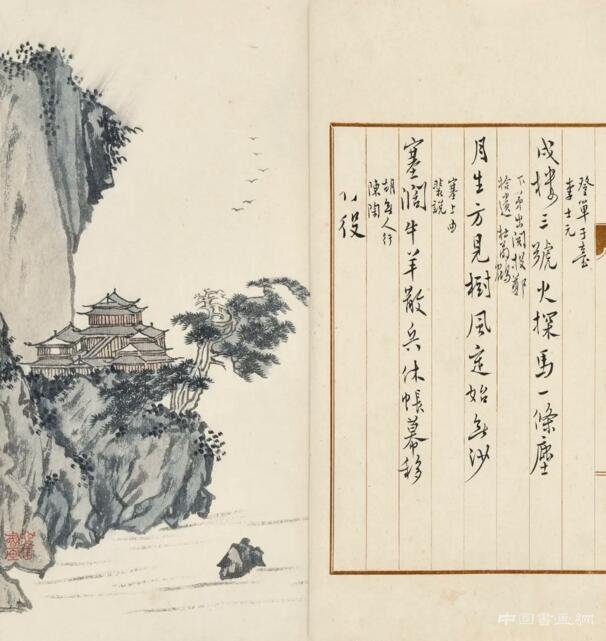 登單于臺
李士元
戍樓三號火探馬一條塵
下第出關投鄭
拾遺 杜荀鶴
月生方見樹風定始無沙
塞上曲
裴説
塞闊牛羊散兵休帳幕移
胡無人行
陳陶
中国書画网